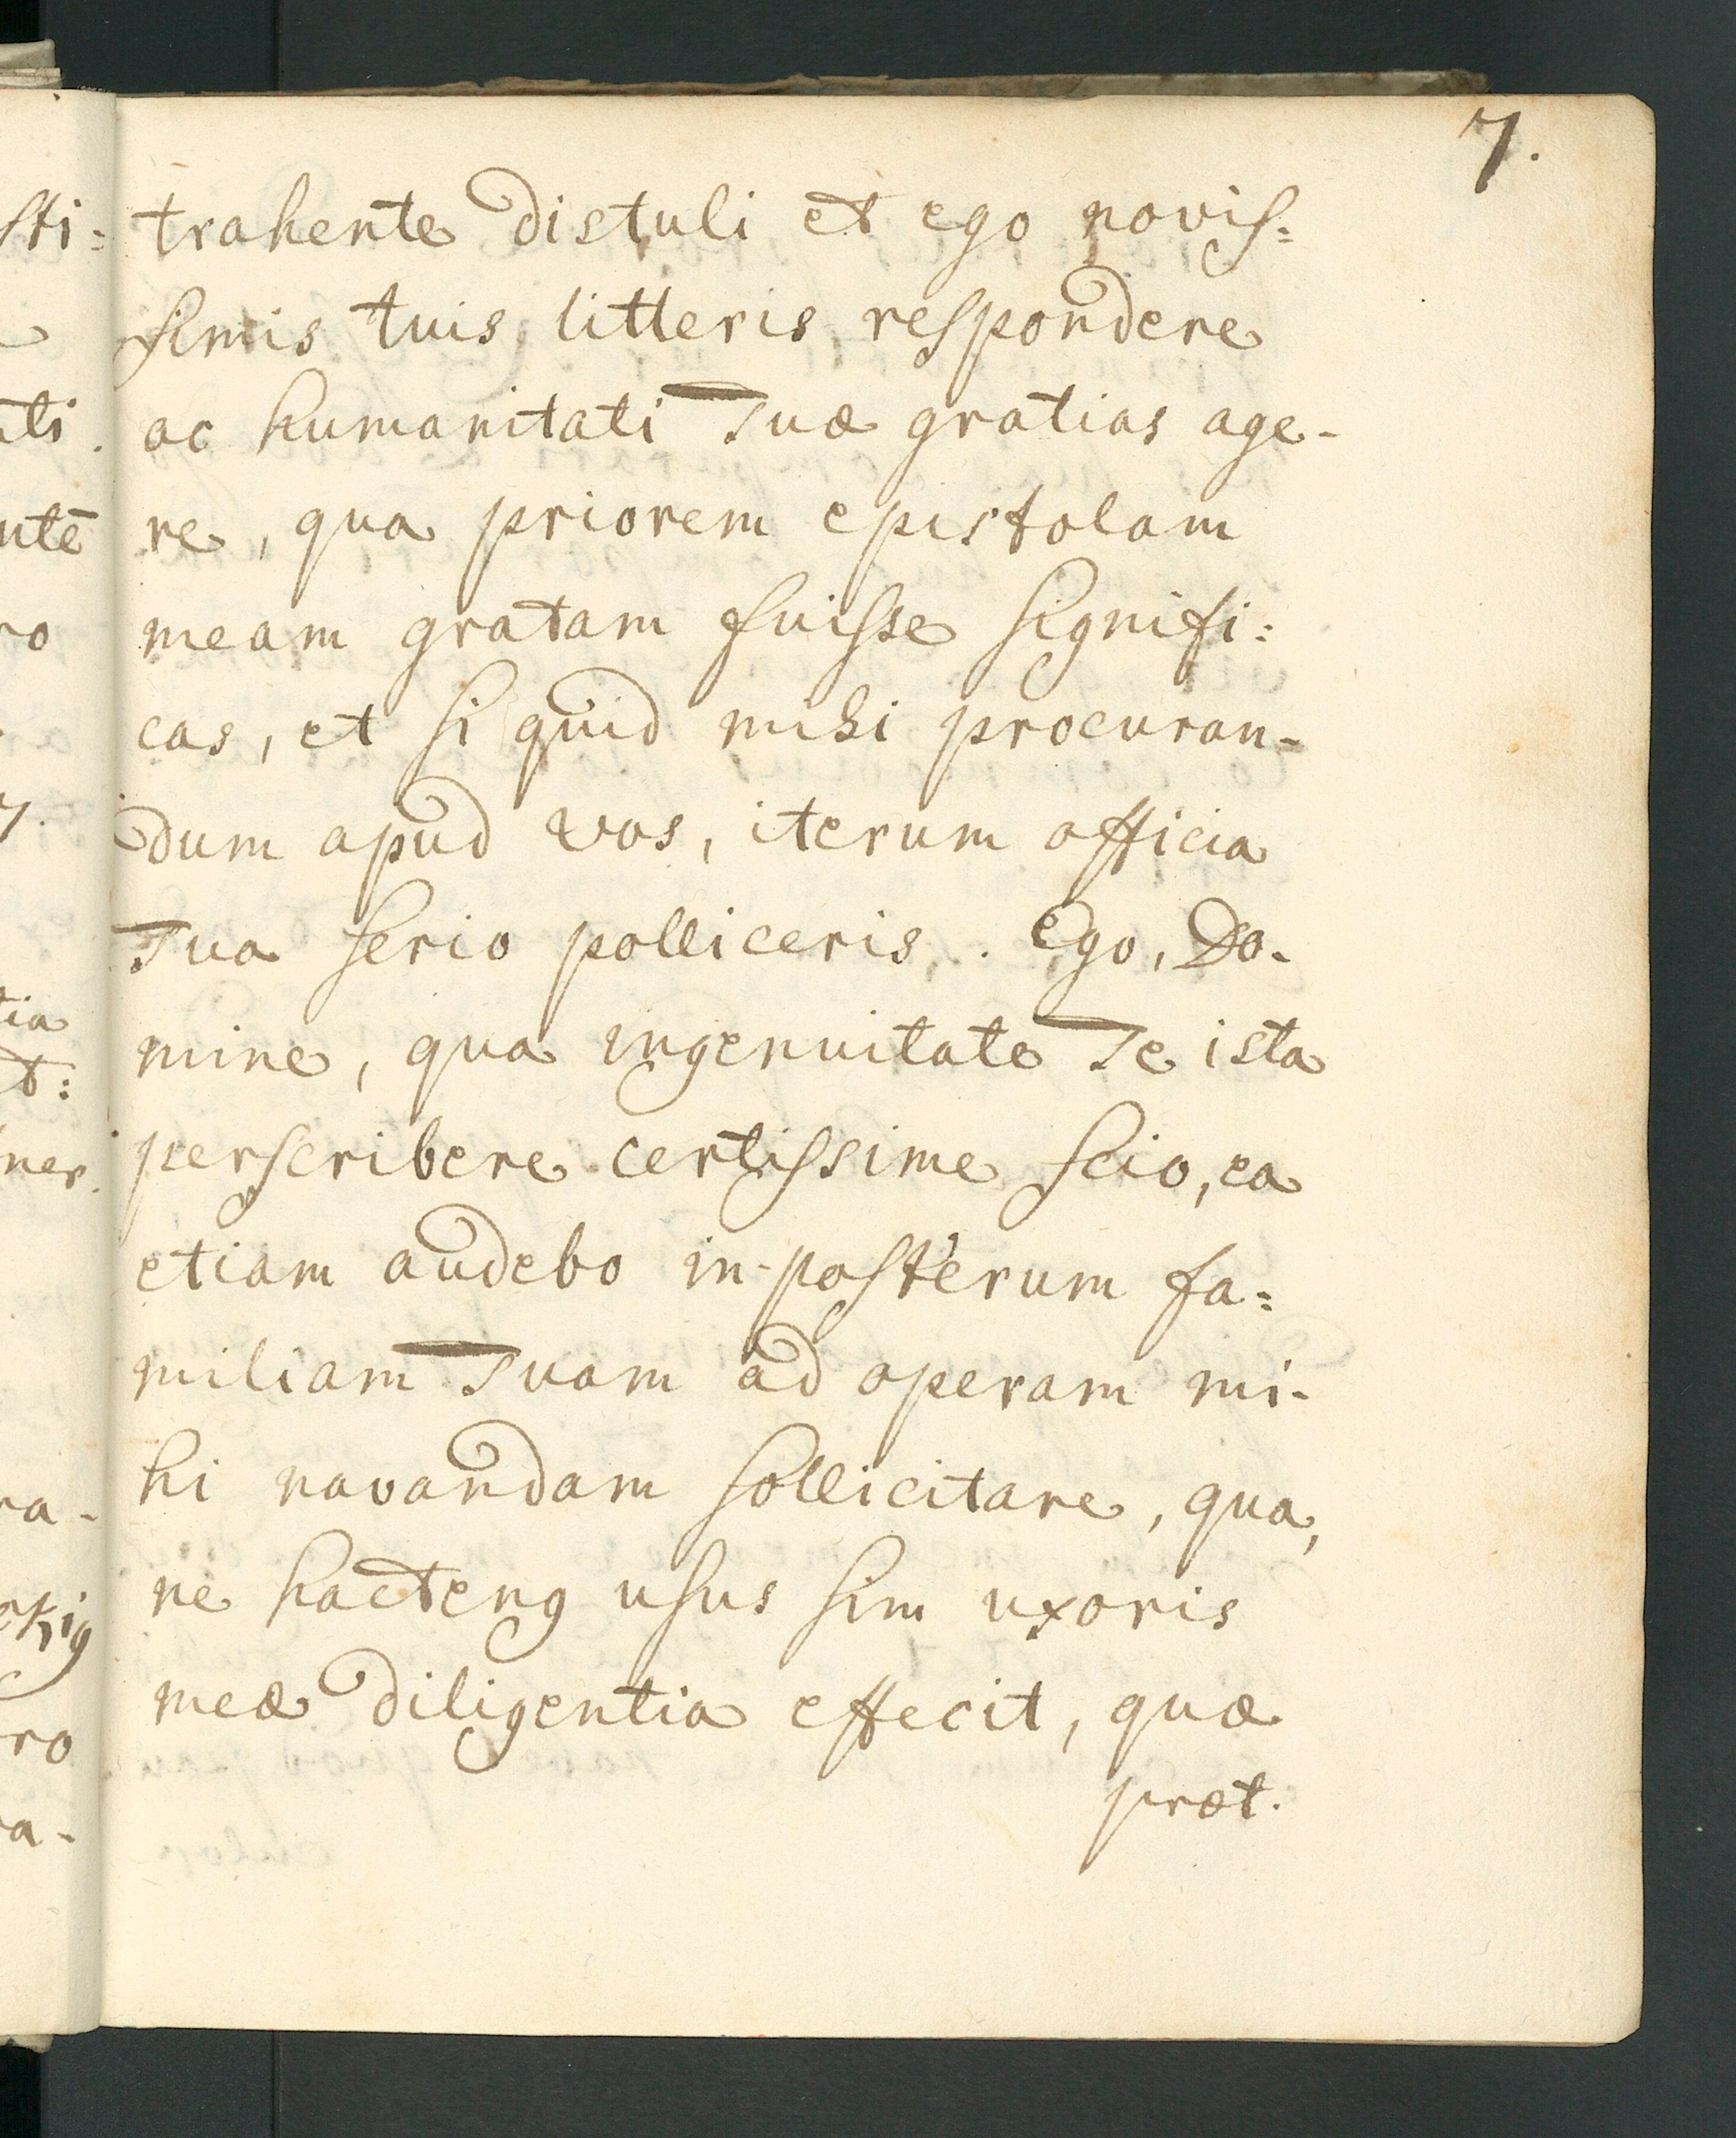 7.
trahente distuli et ego novis=
simis tuis litteris respondere
ac humanitati Tuæ gratias age-
re, qua priorem epistolam
meam gratam fuisse signifi=
cas, et si quid mihi procuran-
dum apud vos, iterum officia
Tua serio polliceris. Ego, Do-
mine, qua ingenuitate Te ista
perscribere certissime scio, ea
etiam audebo in-posterum fa=
miliam Tuam ad operam mi-
hi navandam sollicitare, qua,
ne hactenꝰ usus sim uxoris
meæ diligentia effecit, quæ
præt.